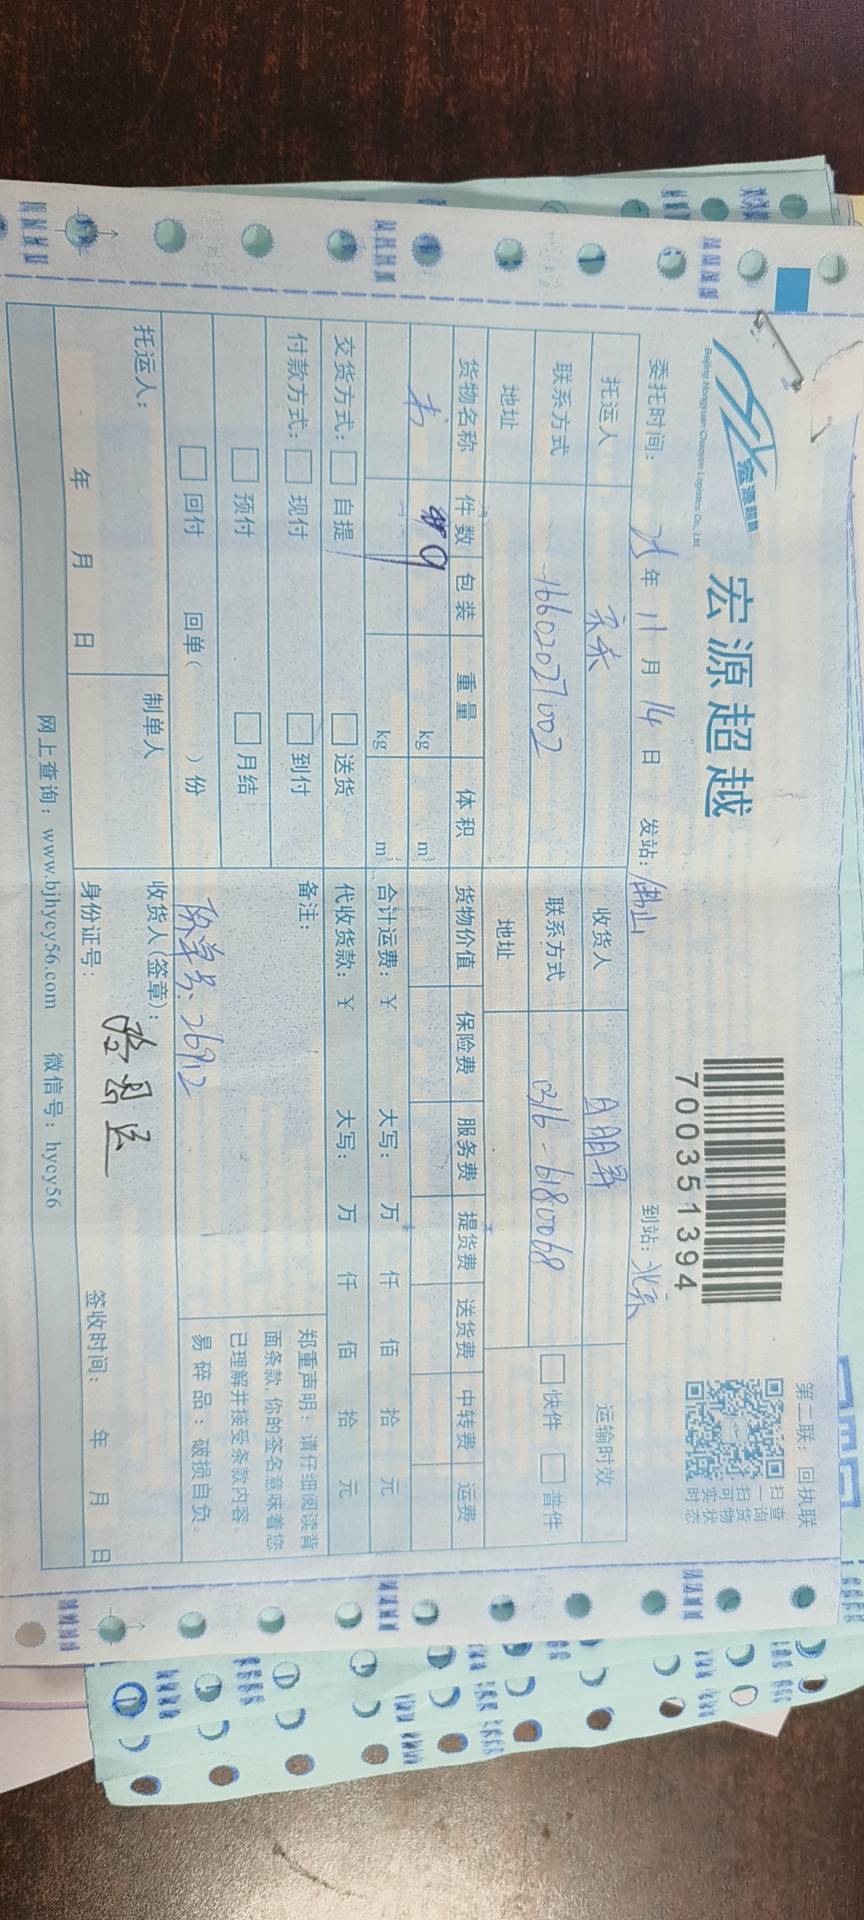 第二联：回执联
宏源超越
Beijing Hongyuan Chaoyue Logistics Co., Ltd.
宏源超越
7000351394
扫一扫可实时
查询货物状态
委托时间： 25 年 11 月 14 日 发站：佛山 到站：北京
托运人 收货人 运输时效
联系方式 16602027002 联系方式 0316-6180068 快件 普件
地址 地址
货物名称 件数 包装 重量 体积 货物价值 保险费 服务费 提货费 送货费 中转费 运费
书 9 kg m³
kg m³ 合计运费：¥ 大写： 万 仟 佰 拾 元
交货方式： 自提 送货 代收货款：¥ 大写： 万 仟 佰 拾 元
付款方式： 现付 到付 备注：
预付 月结
回付 回单（ ）份 单号：26912
郑重声明：请仔细阅读背
面条款，你的签名意味着您
已理解并接受条款内容。
易碎品：破损自负。
托运人： 制单人 收货人(签章)：
年 月 日 身份证号： 签收时间： 年 月 日
网上查询：www.bjhycy56.com 微信号：hycy56